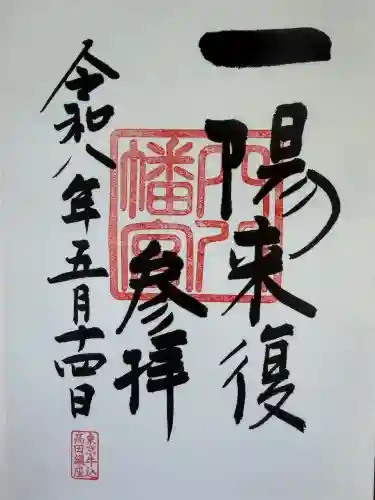 一陽来復
参拝
令和八年五月十四日
穴八幡宮
東京牛込
高田鎮座